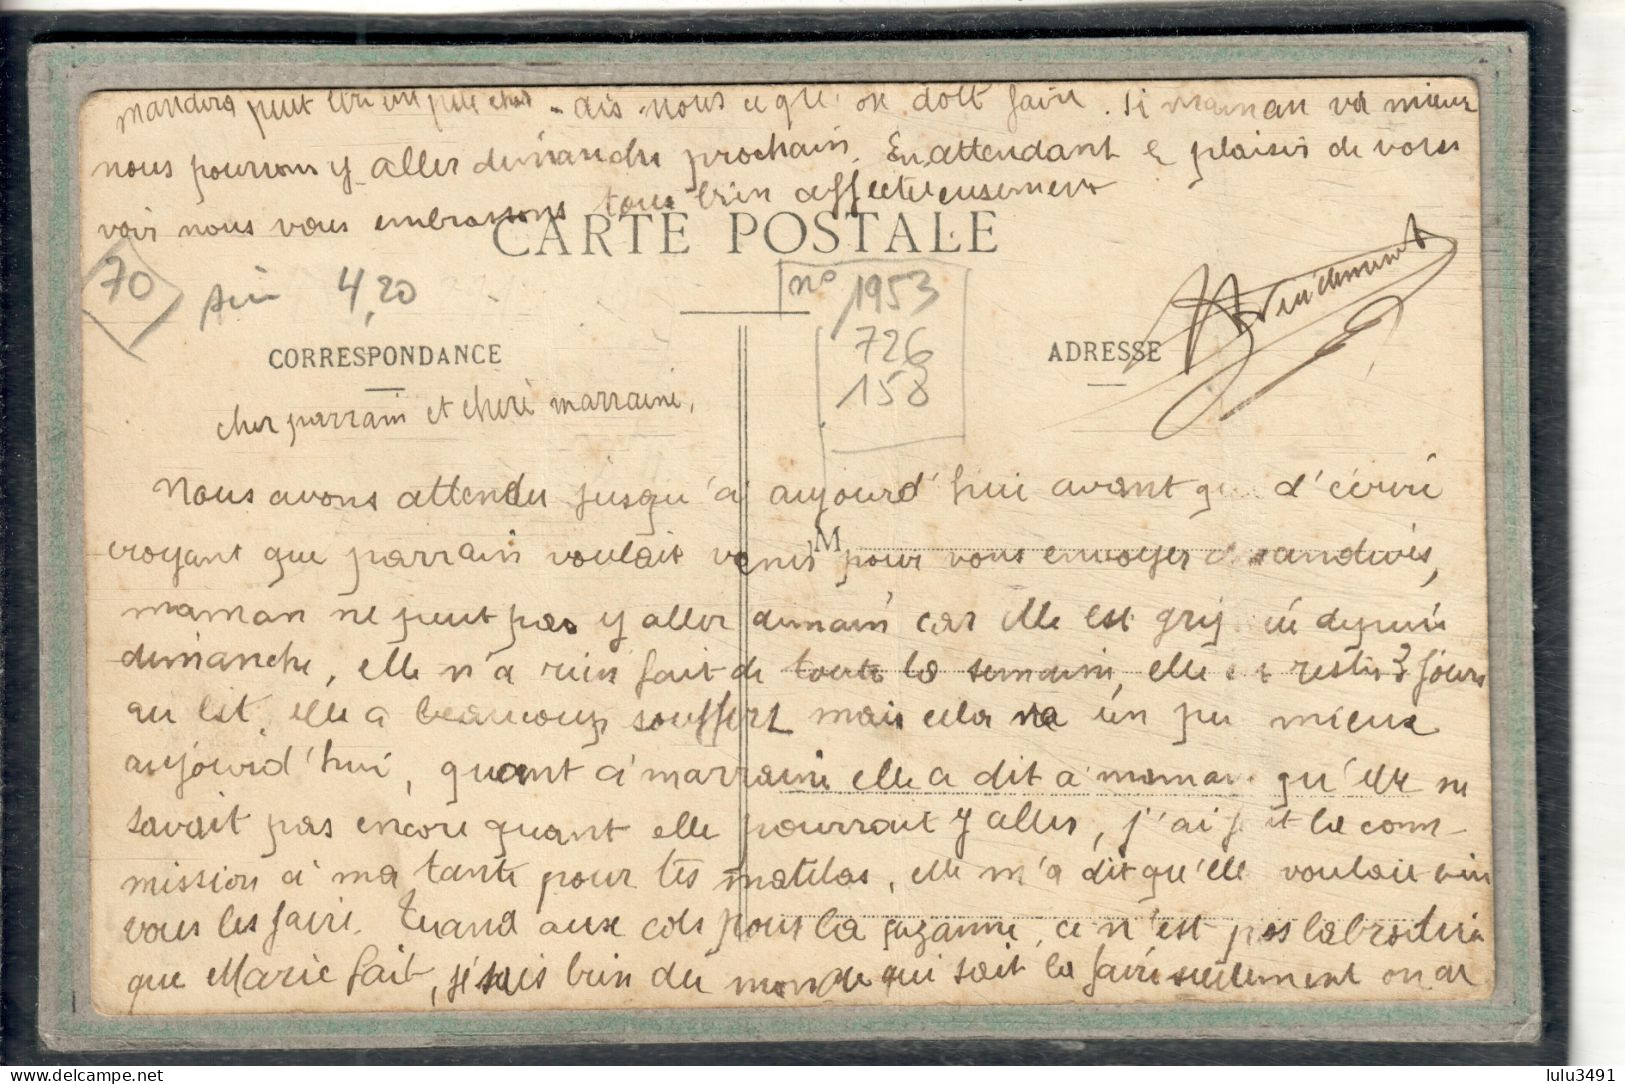 peut être un peu cher - dis nous ce que on doit faire. Si maman va mieux
nous pourrons y aller dimanche prochain. En attendant le plaisir de vous
voir nous vous embrassons tous bien affectueusement
CARTE POSTALE
70
4,20
n° 1953
726
158
CORRESPONDANCE
ADRESSE
cher parrain et chere marraine,
Nous avons attendu jusqu'à aujourd'hui avant que d'écrire
M
croyant que parrain voulait venir pour vous envoyer
maman ne peut pas y aller demain car elle est depuis
dimanche, elle n'a rien fait de toute la semaine, elle est restée 3 jours
au lit, elle a beaucoup souffert mais cela va un peu mieux
aujourd'hui, quant à marraine elle a dit à maman qu'elle ne
savait pas encore quant elle pourrait y aller, j'ai fait la com-
mission à ma tante pour les matelas, elle m'a dit qu'elle voulait bien
vous les faire. Quand aux cols pour la ce n'est pas la broderie
que Marie fait, je sais bien du monde qui sait la faire seulement on
lulu3491